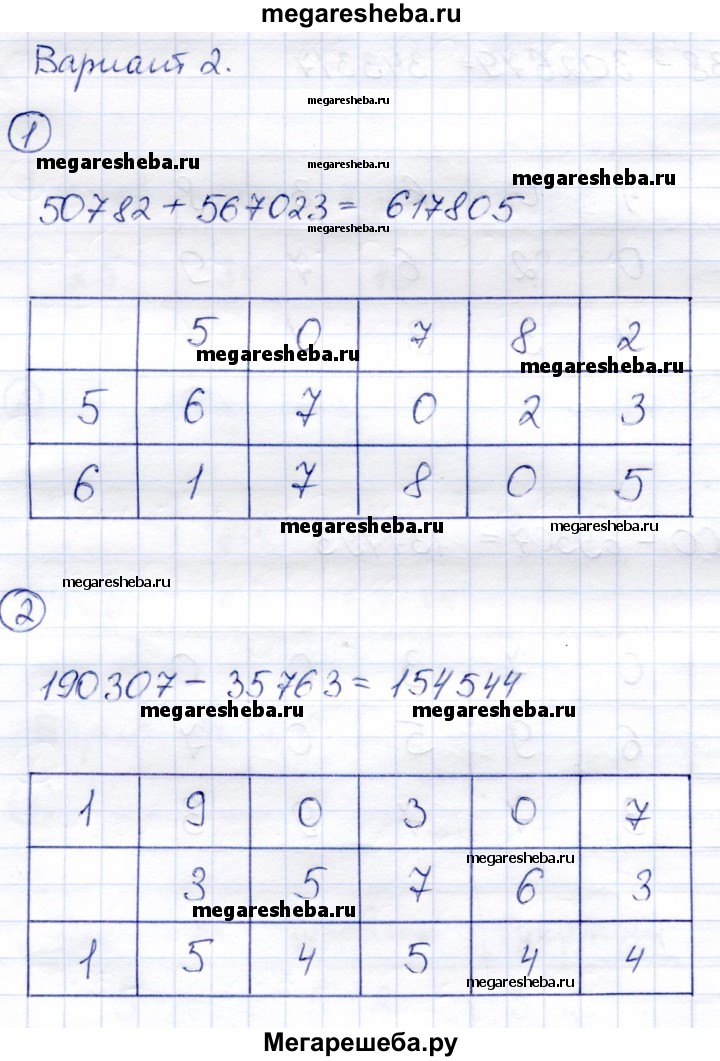 megaresheba.ru
Вариант 2.
megaresheba.ru
1
megaresheba.ru megaresheba.ru megaresheba.ru
50782 + 567023 = 617805
megaresheba.ru
5 0 7 8 2
megaresheba.ru megaresheba.ru
5 6 7 0 2 3
6 1 7 8 0 5
megaresheba.ru megaresheba.ru
megaresheba.ru
2
190307 - 35763 = 154544
megaresheba.ru megaresheba.ru
1 9 0 3 0 7
megaresheba.ru
3 5 7 6 3
megaresheba.ru
1 5 4 5 4 4
megaresheba.ru
Мегарешеба.ру